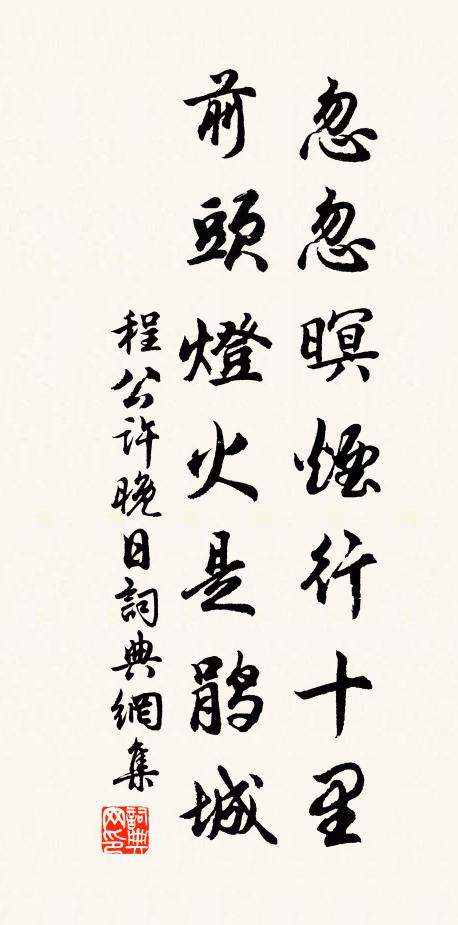 忽忽暝煙行十里
前頭燈火是鵑城
程公許晚日詞典網集
詞典
网印